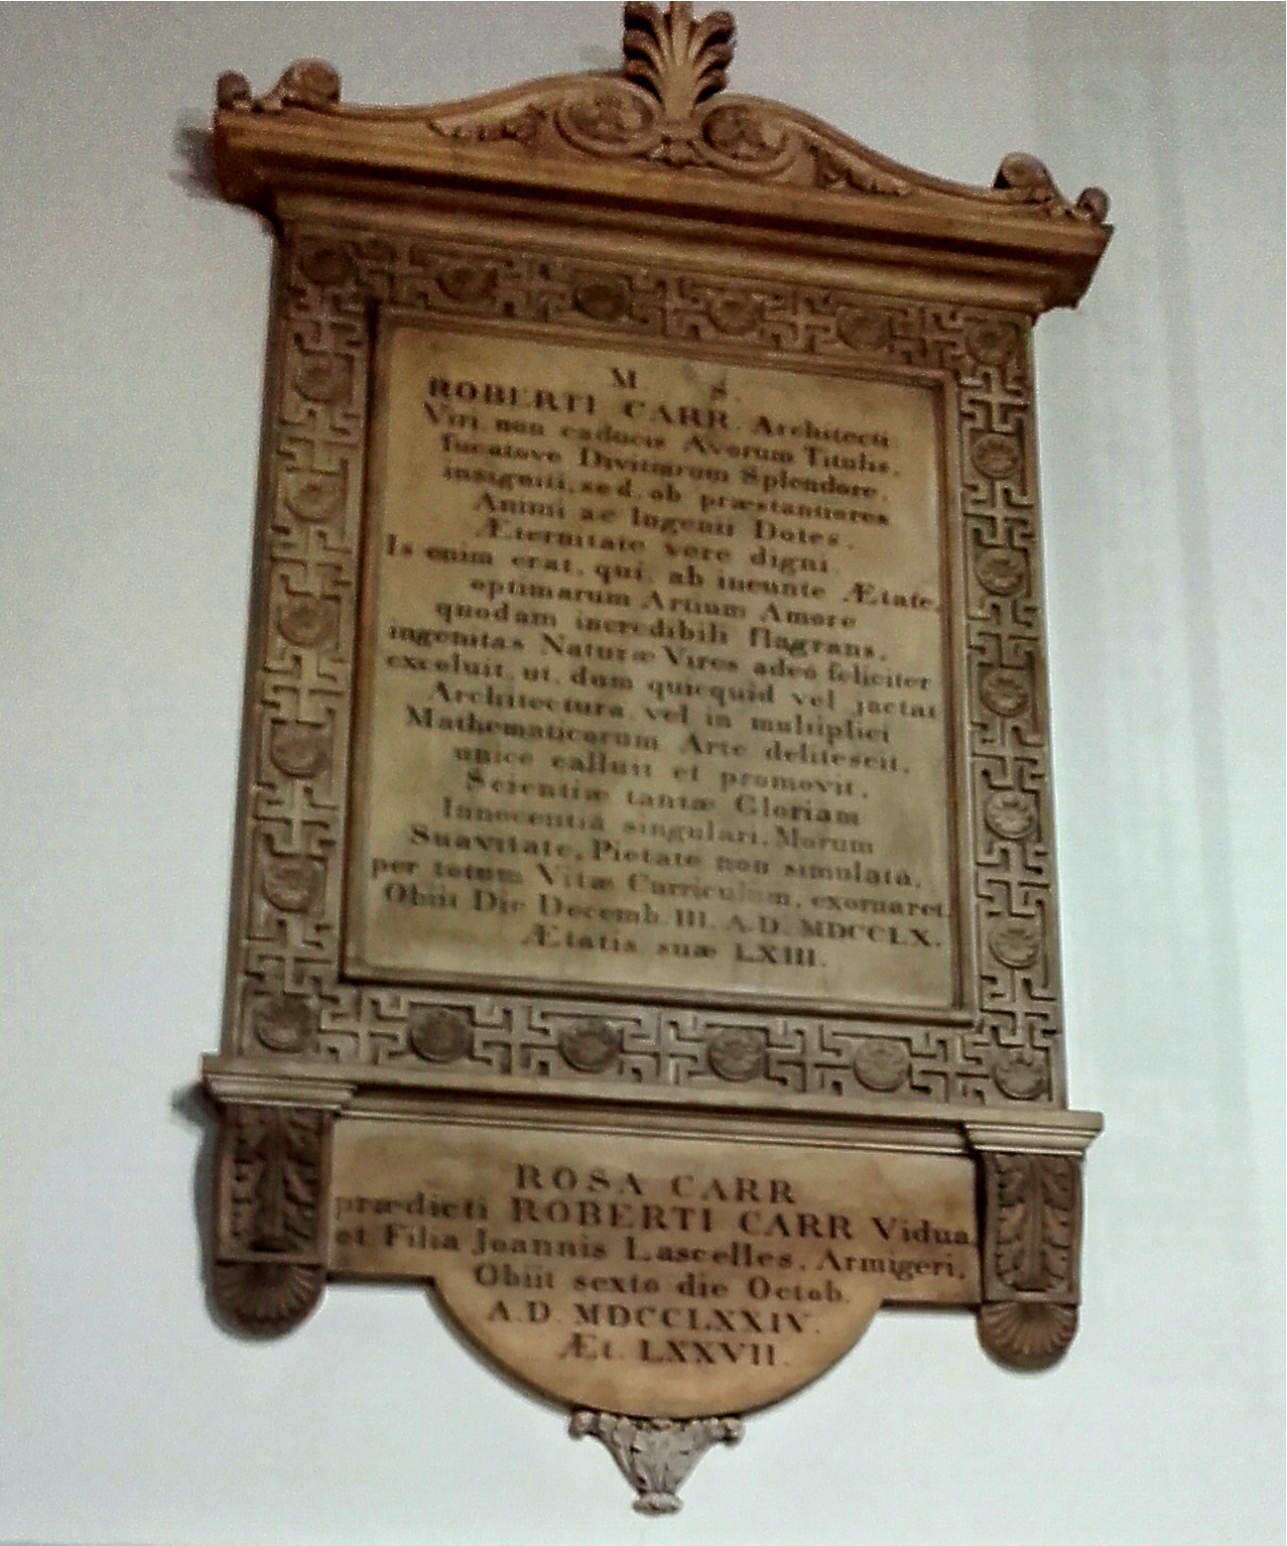 M. S.
ROBERTI CARR. Architecti
Viri, non caducis Avorum Titulis,
fucatove Divitiarum Splendore,
insigniti, sed, ob præstantiores
Animi ac Ingenii Dotes,
Æternitate vere digni.
Is enim erat, qui, ab ineunte Ætate,
optimarum Artium Amore
quodam incredibili flagrans,
ingenitas Naturæ Vires adeó feliciter
excoluit, ut, dum quicquid vel jactat
Architectura, vel in multiplici
Mathematicorum Arte delitescit,
unice calluit et promovit,
Scientiæ tantæ Gloriam
Innocentiâ singulari, Morum
Suavitate, Pietate non simulatâ,
per totum Vitæ Curriculum, exornaret.
Obiit Die Decemb. III. A.D. MDCCLX.
Ætatis suæ LXIII.
ROSA CARR
prædicti ROBERTI CARR Vidua,
et Filia Joannis Lascelles, Armigeri,
Obiit sexto die Octob.
A.D. MDCCLXXIV.
Æt. LXXVII.